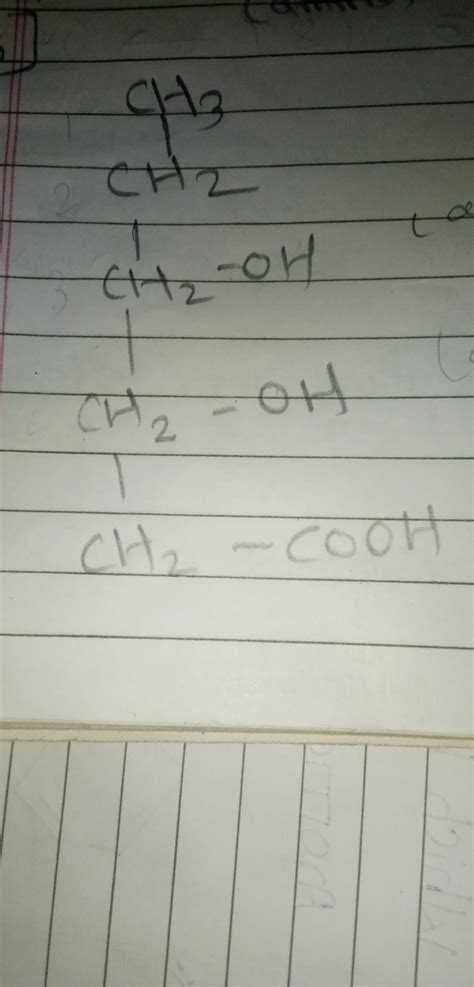 CH3
CH2
CH2-OH
CH2-OH
CH2-COOH